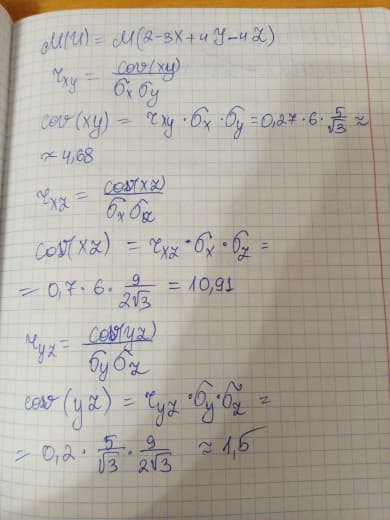 M(U) = M(2-3X+4Y-4Z)
r_xy = cov(xy) / σ_x σ_y
cov(xy) = r_xy · σ_x · σ_y = 0,27 · 6 · 5/√3 ≈
≈ 4,68
r_xz = cov(xz) / σ_x σ_z
cov(xz) = r_xz · σ_x · σ_z =
= 0,7 · 6 · 9/2√3 = 10,91
r_yz = cov(yz) / σ_y σ_z
cov(yz) = r_yz · σ_y · σ_z =
= 0,2 · 5/√3 · 9/2√3 ≈ 1,5